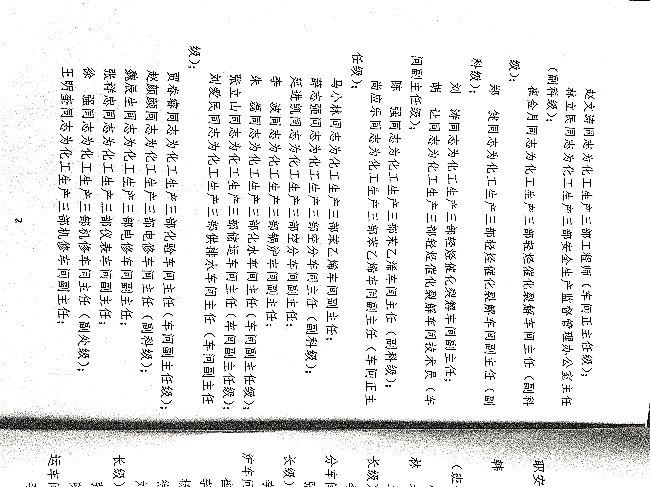 赵文涛同志为化工生产三部工程师（车间正主任级）；
林立民同志为化工生产三部安全生产监督管理办公室主任
（副科级）；
崔金月同志为化工生产三部轻烃催化裂解车间主任（副科
级）；
同志为化工生产三部轻烃催化裂解车间副主任（副
科级）；
刘 涛同志为化工生产三部轻烃催化裂解车间副主任；
胡 让同志为化工生产三部轻烃催化裂解车间技术员（车
间副主任级）；
陈 强同志为化工生产三部苯乙烯车间主任（副科级）；
尚应乐同志为化工生产三部苯乙烯车间副主任（车间正主
任级）；
马小林同志为化工生产三部苯乙烯车间副主任；
薛志强同志为化工生产三部空分车间主任（副科级）；
延进凯同志为化工生产三部空分车间副主任；
李 波同志为化工生产三部锅炉车间副主任；
朱 磊同志为化工生产三部化水车间主任（车间副主任级）；
张立山同志为化工生产三部储运车间主任（车间副主任级）；
刘爱民同志为化工生产三部供排水车间主任（车间副主任
级）；
贾春霖同志为化工生产三部化验车间主任（车间副主任级）；
赵颜颜同志为化工生产三部电修车间主任（副科级）；
魏辰生同志为化工生产三部电修车间副主任；
张祥忠同志为化工生产三部仪表车间副主任；
徐 强同志为化工生产三部机修车间主任（副处级）；
王明奎同志为化工生产三部机修车间副主任；
2
职安
韩
（班
秋
长级）
分车间
长级）
炉车间
长级）
运车间